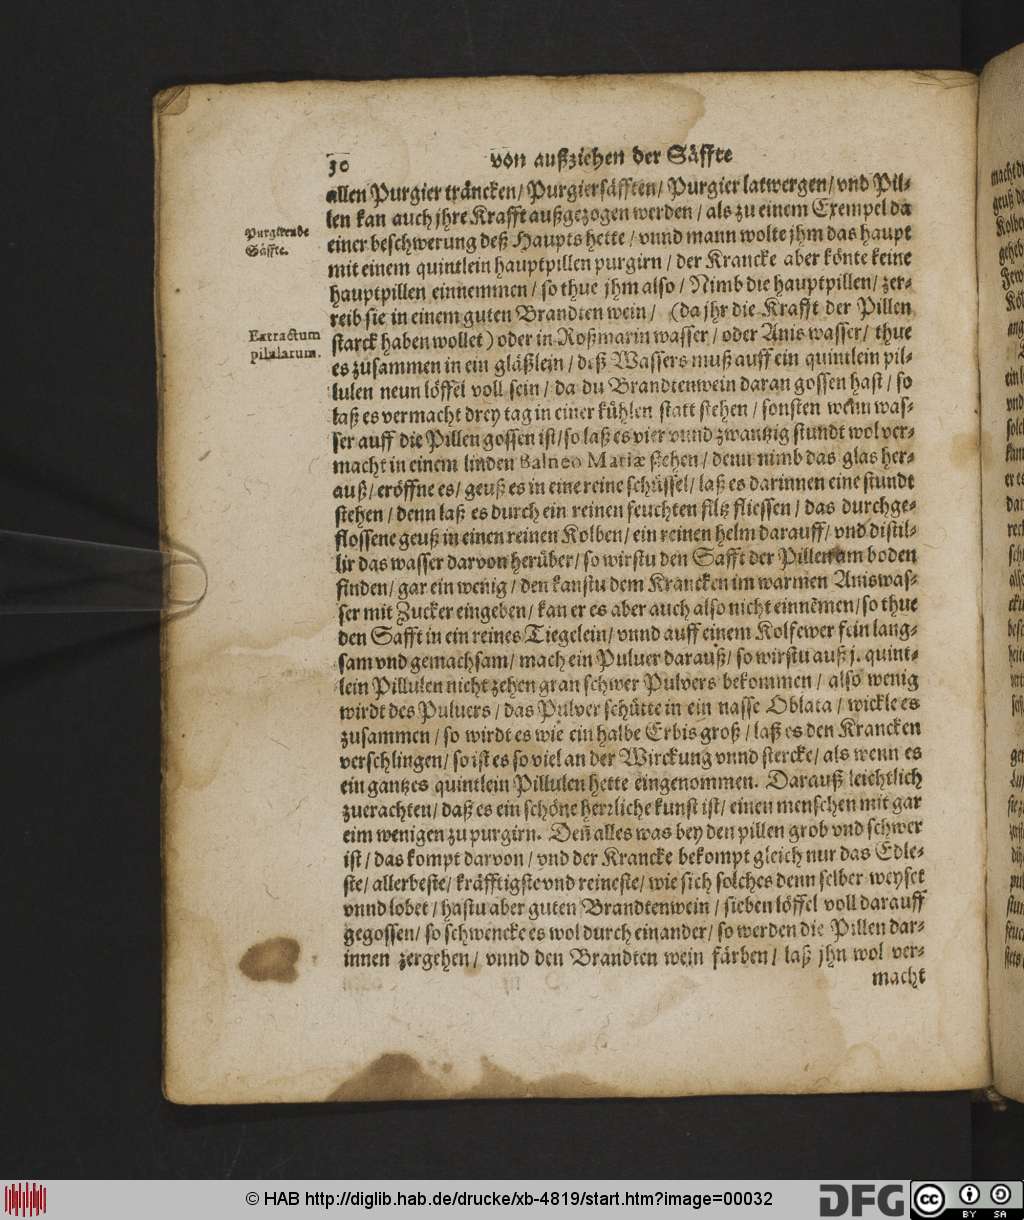 30
von außziehen der Säffte
allen Purgier träncken/ Purgiersäfften/ Purgier latwergen/ vnd Pil-
len kan auch jhre Krafft außgezogen werden/ als zu einem Exempel da
Purgirende
Säffte.
einer beschwerung deß Haupts hette/ vnnd mann wolte jhm das haupt
mit einem quintlein hauptpillen purgirn/ der Krancke aber könte keine
hauptpillen einnemmen/ so thue jhm also/ Nimb die hauptpillen/ zer-
reib sie in einem guten Brandten wein/ (da jhr die Krafft der Pillen
Extractum
pilularum.
starck haben wollet) oder in Roßmarin wasser/ oder Anis wasser/ thue
es zusammen in ein gläßlein/ deß Wassers muß auff ein quintlein pil-
lulen neun löffel voll sein/ da du Brandtenwein daran gossen hast/ so
laß es vermacht drey tag in einer kühlen statt stehen/ sonsten wenn was-
ser auff die Pillen gossen ist/ so laß es vier vnnd zwantzig stundt wol ver-
macht in einem linden Balneo Mariæ stehen/ denn nimb das glas her-
auß/ eröffne es/ geuß es in eine reine schüssel/ laß es darinnen eine stundt
stehen/ denn laß es durch ein reinen feuchten filtz fliessen/ das durchge-
flossene geuß in einen reinen Kolben/ ein reinen helm darauff/ vnd distil-
lir das wasser darvon herüber/ so wirstu den Safft der Pillen am boden
finden/ gar ein wenig/ den kanstu dem Krancken im warmen Aniswas-
ser mit Zucker eingeben/ kan er es aber auch also nicht einnēmen/ so thue
den Safft in ein reines Tiegelein/ vnnd auff einem Kolfewer fein lang-
sam vnd gemachsam/ mach ein Puluer darauß/ so wirstu auß j. quint-
lein Pillulen nicht zehen gran schwer Pulvers bekommen/ also wenig
wirdt des Puluers/ das Pulver schütte in ein nasse Oblata/ wickle es
zusammen/ so wirdt es wie ein halbe Erbis groß/ laß es den Krancken
verschlingen/ so ist es so viel an der Wirckung vnnd stercke/ als wenn es
ein gantzes quintlein Pillulen hette eingenommen. Darauß leichtlich
zuerachten/ daß es ein schöne herrliche kunst ist/ einen menschen mit gar
eim wenigen zu purgirn. Deñ alles was bey den pillen grob vnd schwer
ist/ das kompt darvon/ vnd der Krancke bekompt gleich nur das Edle-
ste/ allerbeste/ kräfftigste vnd reineste/ wie sich solches denn selber weyset
vnnd lobet/ hastu aber guten Brandtenwein/ sieben löffel voll darauff
gegossen/ so schwencke es wol durch einander/ so werden die Pillen dar-
innen zergehen/ vnnd den Brandten wein färben/ laß jhn wol ver-
macht
© HAB http://diglib.hab.de/drucke/xb-4819/start.htm?image=00032
DFG
cc BY SA